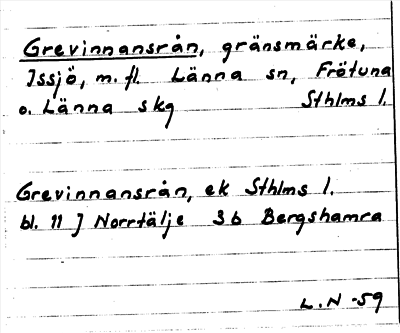 Grevinnansrån, gränsmärke,
Issjö, m. fl. Länna sn, Frötuna
o. Länna skg Sthlms l.
Grevinnansrån, ek Sthlms l.
bl. 11 J Norrtälje 3b Bergshamra
L.N -59